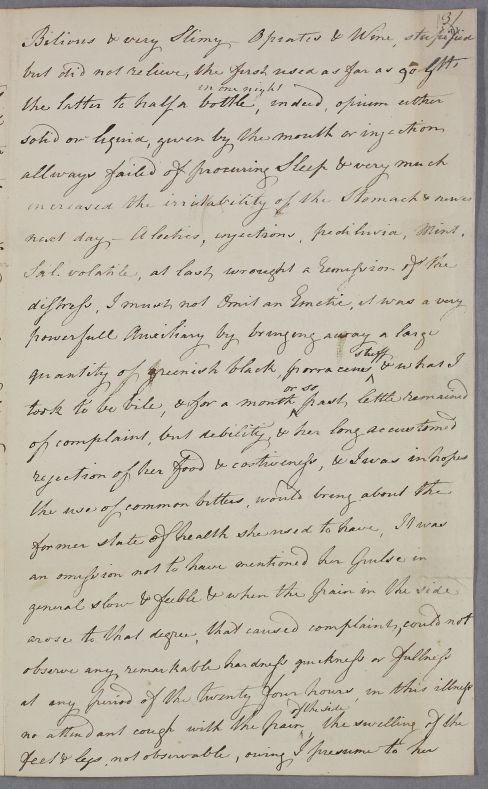 3)
Bilious & very Slimy Opiates & Wine, stupified
but did not relieve, the first used as far as 90 gtts,
in one night
the latter to half a bottle, indeed, opium either
solid or liquid, given by the mouth or injection
allways failed of procuring Sleep & very much
increased the irritability of the Stomach &
next day — Aloetics, injections, pediluvia, Mint,
Sal. volatile, at last, wrought a remission of the
distress, I must not Omit an Emetic, it was a very
powerfull Auxiliary by bringing away a large
stuff
quantity of greenish black, porraceus & what I
or so
took to be bile, & for a month past, little remained
of complaint, but debility, & her long accustomed
rejection of her food & costiveness, & I was in hopes
the use of common bitters, would bring about the
former state of health she used to have, It was
an omission not to have mentioned her Pulse in
general slow & feeble & when the pain in the side
arose to that degree, that caused complaint, could not
observe any remarkable hardness quickness or fullness
at any period of the twenty four hours, in this illness
of the side
no attendant cough with the pain, the swelling of the
feet & legs, not observable, owing I presume to her